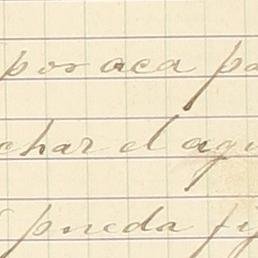 por aca pa
char el agu
pueda fij